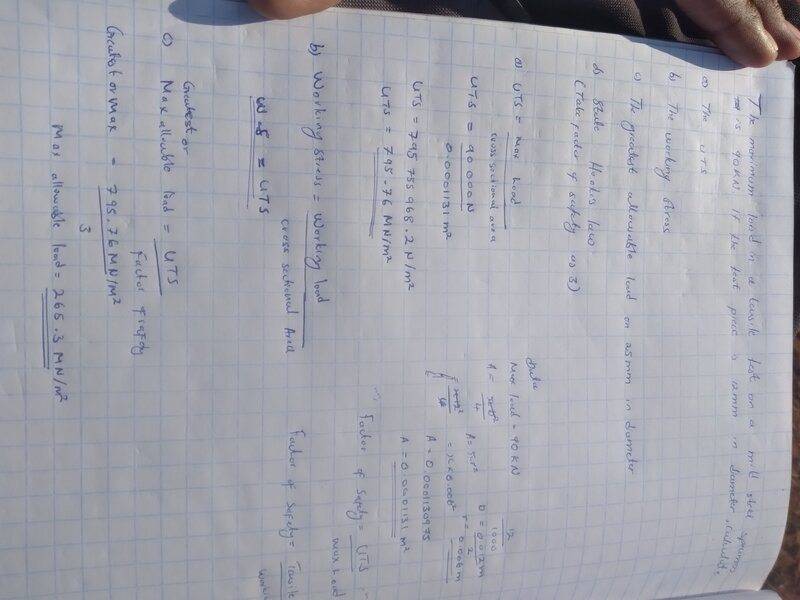 The maximum load in a tensile test on a mild steel specimen
is 90KN. If the test piece is 12mm in diameter, calculate,
a) The UTS
b) The working stress
c) The greatest allowable load on 25mm in diameter
d) State Hooke's law
(Take factor of safety as 3)
a) UTS = max load
cross sectional area
UTS = 90 000N
0.0001131 m²
UTS = 795 755 968.2 N/m²
UTS = 795.76 MN/m²
b) Working stress = Working load
cross sectional Area
W.S = UTS
c) Greatest or
Max allowable load = UTS
Factor of safety
Greatest or Max = 795.76 MN/m²
3
Max allowable load = 265.3 MN/m²
Data
Max load = 90 KN
A = πD²
4
12
1000
D = 0.012m
2
r = 0.006m
A = πr²
= π × 0.006²
A = 0.0001130975
A = 0.0001131 m²
Factor of Safety = UTS
max load
Factor of Safety = Tensile